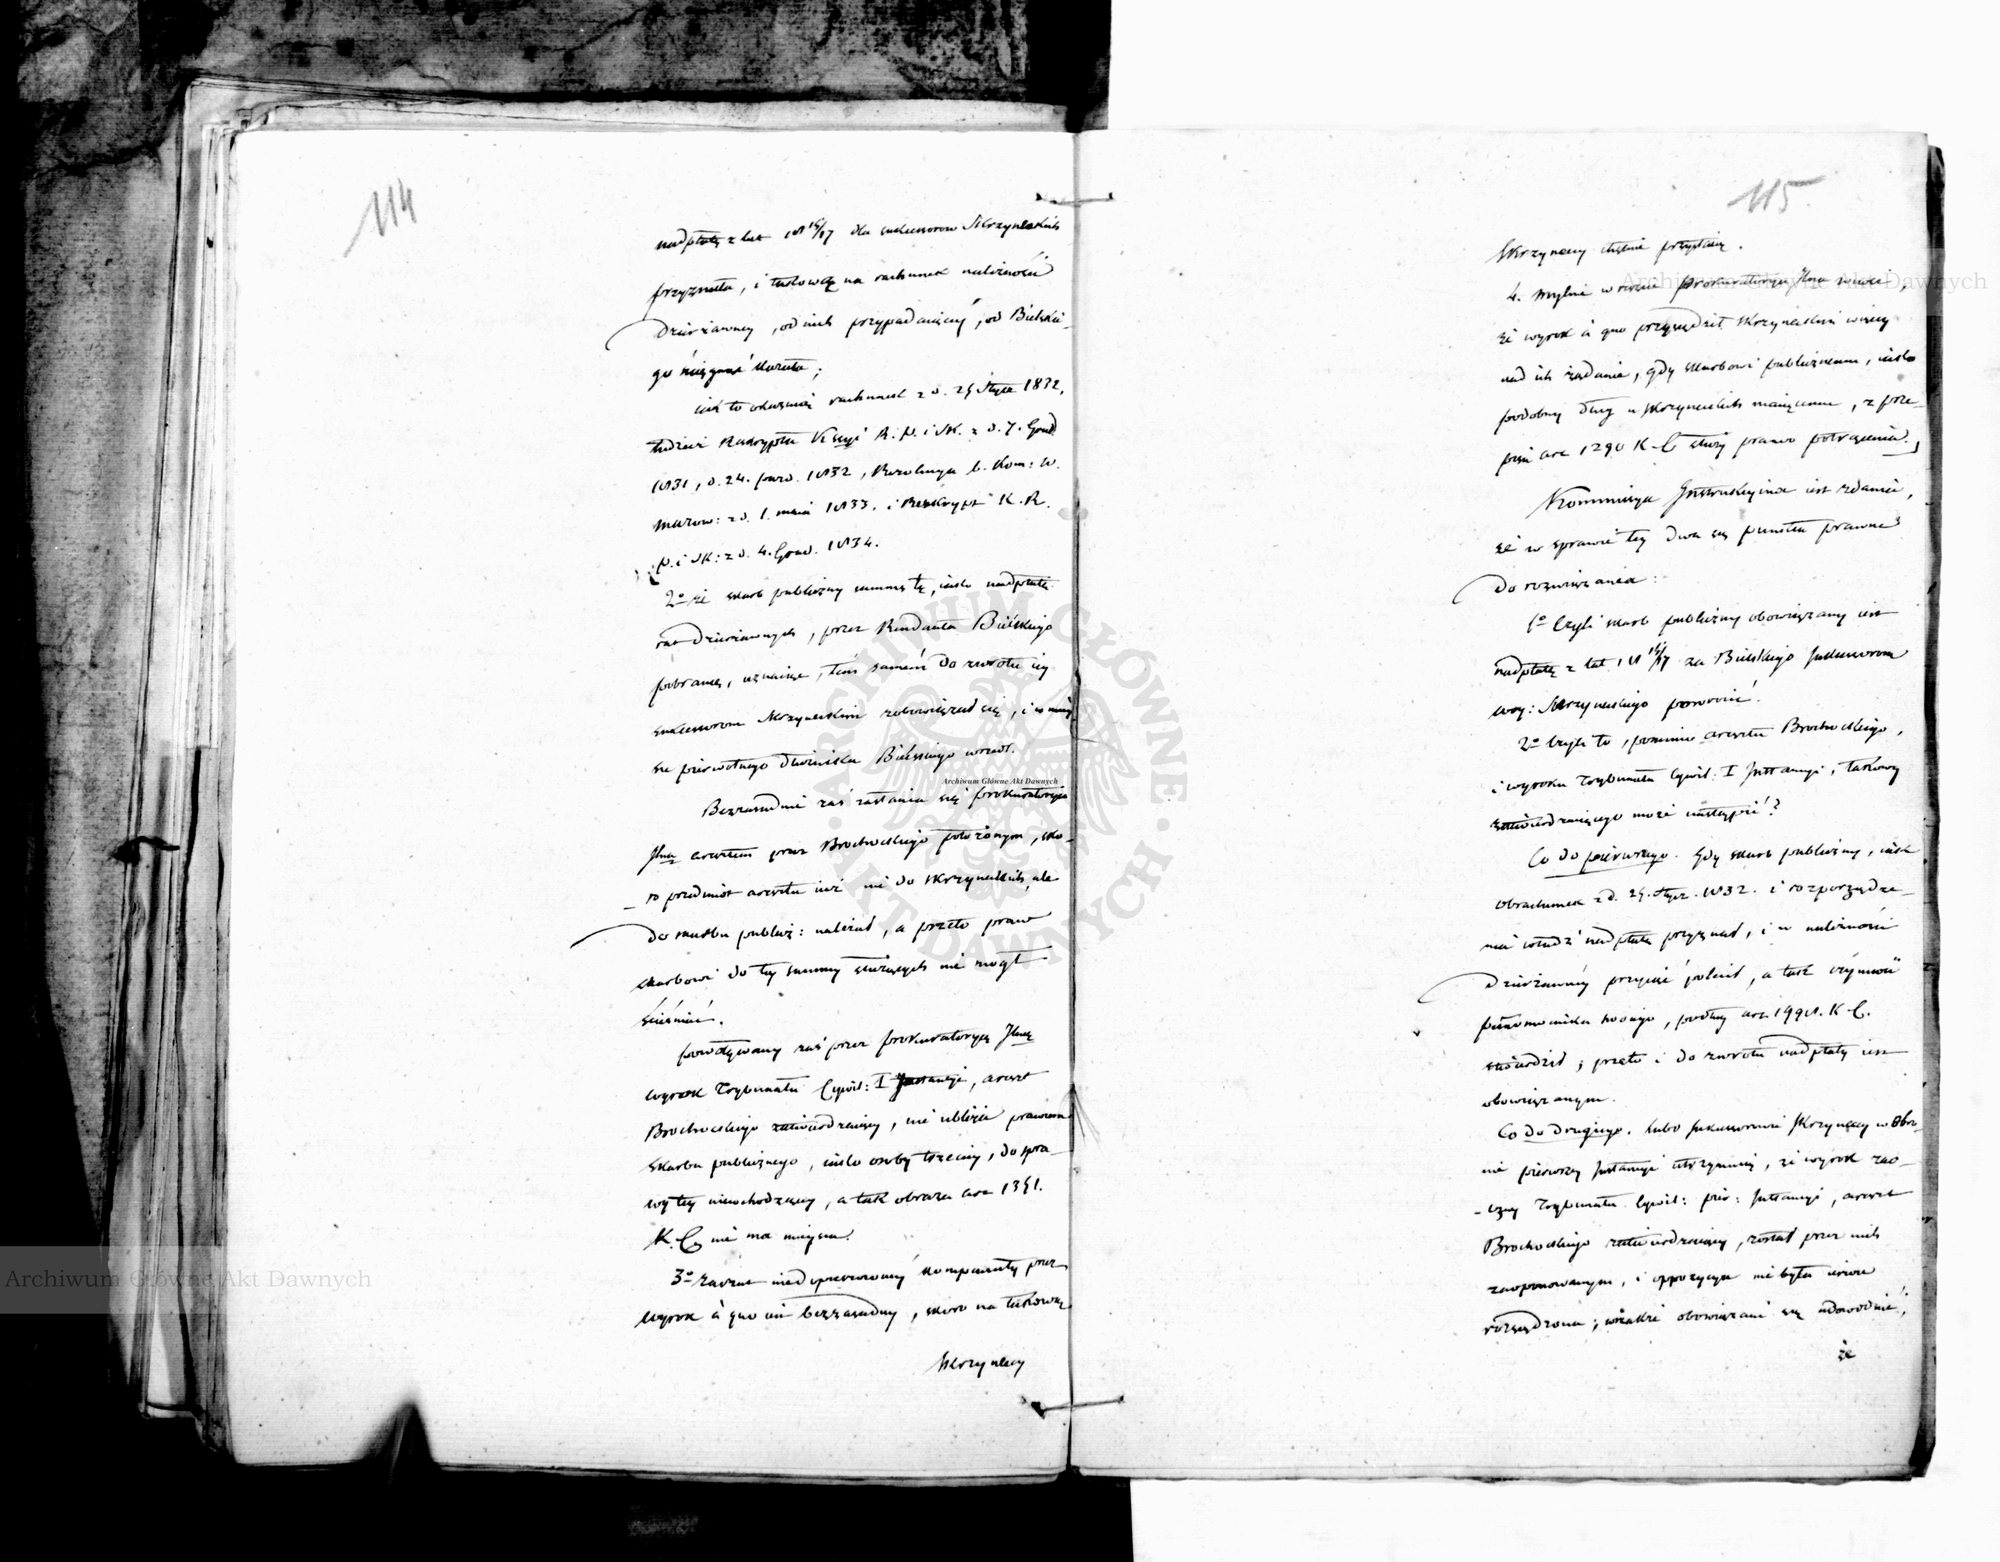 114
nadpłatę z lat 1816/17 dla sukcessorow Skrzyneckich
przyznała, i takową na rachunek należności
dzierżawnej, od nich przypadającej, od Bielskie-
go ściągać kazała;
iak to okazuią rachunek z d. 25 Stycz 1832,
tudzież Reskrypta Kissyi R. P. i Sk. z d. 7. Grud
1831, d. 24. paźd. 1832, Rezolucya b. Kom: W.
Mazow: z d. 1. maia 1833. i Reskrypt K. R.
P. i Sk: z d. 4. Grud. 1834.
2o że skarb publiczny summę tę, iako nadpłatę
rat dzierżawnych, przez Rendanta Bielskiego
pobraną, uznaiąc, tem samem do zwrotu iey
sukcessorom Skrzyneckim zobowiązał się, i w miey
sce pierwotnego dłużnika Bielskiego wszedł.
Bezzasadnie zaś zasłania się prokuratorya
Jlna aresztem przez Brochockiego położonym, sko-
ro przedmiot aresztu iuż nie do Skrzyneckich, ale
do skarbu publicz: należał, a przeto praw
skarbowi do tey summy służących nie mógł
ścieśniać.
powoływany zaś przez prokuratoryą Jlną
wyrok Trybunału Cywil: I Instancyi, areszt
Brochockiego zatwierdzaiący, nie ubliża prawom
skarbu publicznego, iako osoby trzeciey, do spra-
wy tey niewchodzącey, a tak obraza art 1351.
K. C. nie ma mieysca.
3o Zarzut niedopuszczoney kompensaty przez
wyrok à quo iest bezzasadny, skoro na takową
Skrzyneccy
115.
Skrzyneccy chętnie przystaią.
4. Mylnie wreszcie Prokuratorya Jlna wnosi,
że wyrok à quo przysądził Skrzyneckim więcey
nad ich żądanie, gdy skarbowi publicznemu, iako
podobny dług u Skrzyneckich maiącemu, z prze-
pisu art 1290 K. C. służy prawo potrącenia.
Kommissya Instrukcyina iest zdania,
że w sprawie tey dwa są punkta prawne
do rozwiązania:
1o Czyli skarb publiczny obowiązany iest
nadpłatę z lat 1816/17 za Bielskiego sukcessorom
Woy: Skrzyneckiego powrócić.
2o Czyli to, pomimo aresztu Brochockiego,
i wyroku Trybunału Cywil: I Instancyi, takowy
zatwierdzaiącego może nastąpić?
Co do pierwszego. Gdy skarb publiczny, iak
obrachunek z d. 25. Stycz. 1832. i rozporządze-
nia władz nadpłatę przyznał, i w należności
dzierżawney przyiąć polecił, a tak czynność
pełnomocnika swoiego, podług art 1998. K. C.
stwierdził; przeto i do zwrotu nadpłaty iest
obowiązanym.
Co do drugiego. Lubo sukcessorowie Skrzyneccy w obro-
nie pierwszey Instancyi utrzymuią, że wyrok zao-
czny Trybunału Cywil: pier: Instancyi, areszt
Brochockiego zatwierdzaiący, został przez nich
zaoponowanym, i oppozycya nie była ieszcze
rozsądzona; wszakże obowiązani są udowodnić,
że
Archiwum Główne Akt Dawnych
Archiwum Główne Akt Dawnych
Archiwum Główne Akt Dawnych
ARCHIWUM GŁÓWNE AKT DAWNYCH